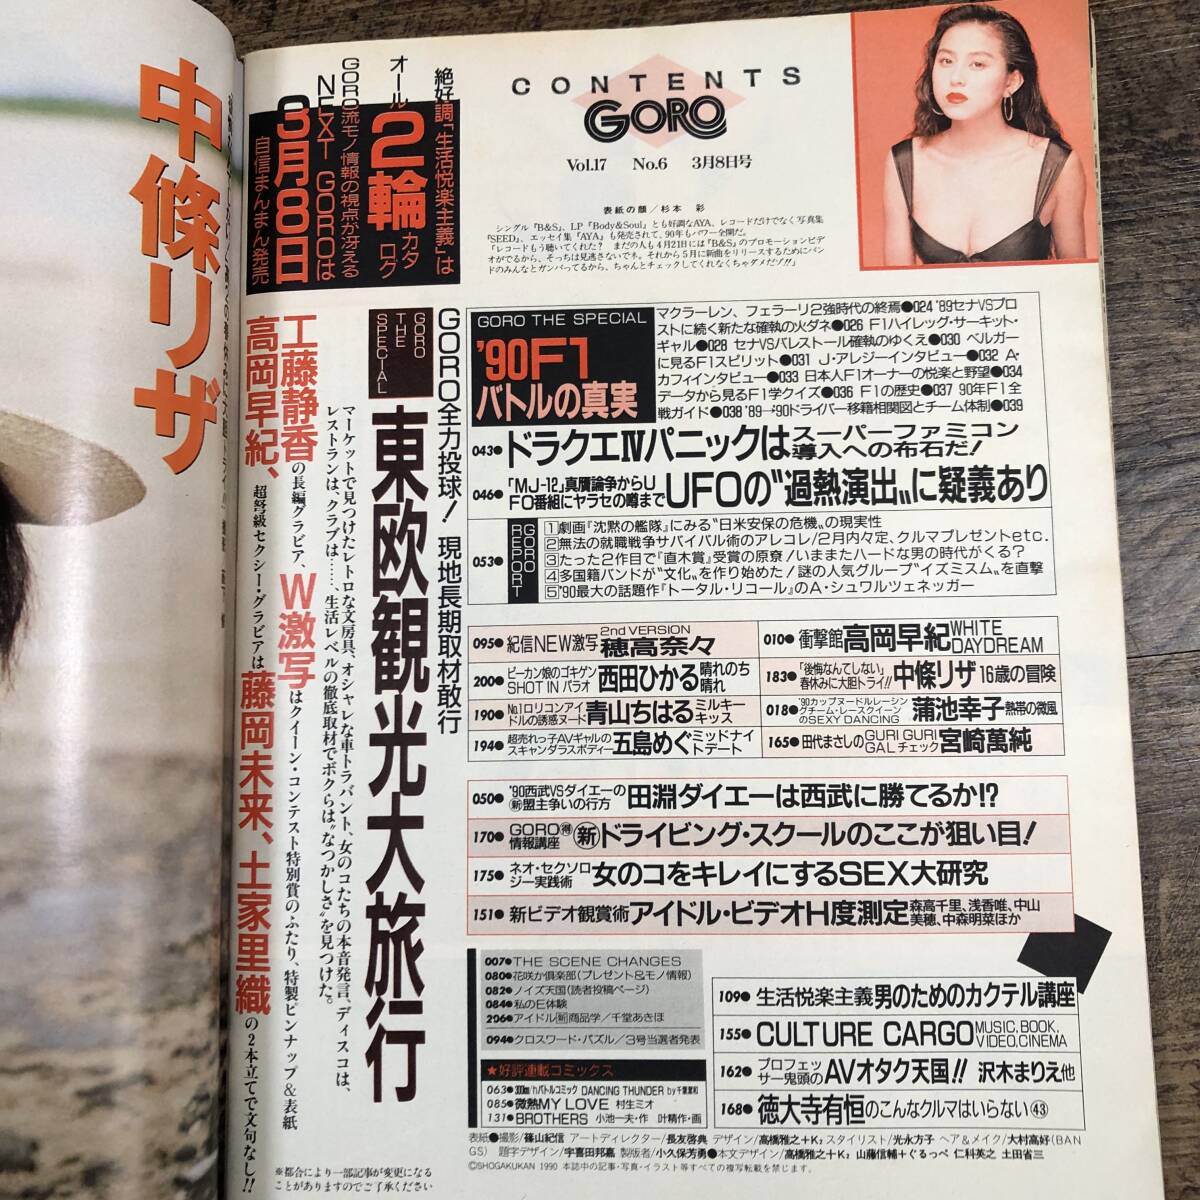 中條リザ
CONTENTS
GORO
Vol.17 No.6 3月8日号
表紙の顔/杉本 彩
シングル『B&S』、LP『Body&Soul』とも好調なAYA、レコードだけでなく写真集
『SEED』、エッセイ集『AYA』も発売されて、90年もパワー全開だ。
「レコードもう聴いてくれた? まだの人も4月21日には『B&S』のプロモーションビデ
オがでるから、そっちは見逃さないでネ。それから5月に新曲をリリースするためにバン
ドのみんなとガンバってるから、ちゃんとチェックしてくれなくちゃダメだゾ!!」
絶好調「生活悦楽主義」は
オール2輪カタログ
GORO流モノ情報の視点が冴える
NEXT GOROは
3月8日
自信まんまん発売
GORO THE SPECIAL
'90F1
バトルの真実
マクラーレン、フェラーリ2強時代の終焉●024 '89セナVSプロ
ストに続く新たな確執の火ダネ●026 F1ハイレッグ・サーキット・
ギャル●028 セナVSバレストール確執のゆくえ●030 ベルガー
に見るF1スピリット●031 J・アレジーインタビュー●032 A・
カフィインタビュー●033 日本人F1オーナーの悦楽と野望●034
データから見るF1学クイズ●036 F1の歴史●037 90年F1全
戦ガイド●038 '89→'90ドライバー移籍相関図とチーム体制●039
043●ドラクエⅣパニックはスーパーファミコン導入への布石だ!
046●「MJ-12」真贋論争からUFO番組にヤラセの噂までUFOの"過熱演出"に疑義あり
053●
GORO REPORT
1 劇画『沈黙の艦隊』にみる"日米安保の危機"の現実性
2 無法の就職戦争サバイバル術のアレコレ/2月内々定、クルマプレゼントetc.
3 たった2作目で『直木賞』受賞の原尞!いままたハードな男の時代がくる?
4 多国籍バンドが"文化"を作り始めた!謎の人気グループ"イズミズム"を直撃
5 '90最大の話題作『トータル・リコール』のA・シュワルツェネッガー
GORO全力投球! 現地長期取材敢行
GORO THE SPECIAL
東欧観光大旅行
マーケットで見つけたレトロな文房具、オシャレな車トラバント、女のコたちの本音発言、ディスコは、
レストランは、クラブは……、生活レベルの徹底取材でボクらは"なつかしさ"を見つけた。
工藤静香の長編グラビア、W激写はクイーン・コンテスト特別賞のふたり、特製ピンナップ&表紙
高岡早紀、超弩級セクシー・グラビアは藤岡未来、土家里織の2本立てで文句なし!!
095●紀信NEW激写 2nd VERSION 穂高奈々
200●ピーカン娘のゴキゲンSHOT IN パラオ 西田ひかる 晴れのち晴れ
190●No.1ロリコンアイドルの誘惑ヌード 青山ちはる ミルキーキッス
194●超売れっ子AVギャルのスキャンダラスボディー 五島めぐ ミッドナイトデート
010●衝撃館 高岡早紀 WHITE DAYDREAM
183●「後悔なんてしない」春休みに大胆トライ!! 中條リザ 16歳の冒険
018●'90カップヌードルレーシングチーム・レースクイーンのSEXY DANCING 蒲池幸子 熱帯の微風
165●田代まさしのGURI GURI GALチェック 宮崎萬純
050●'90西武VSダイエーの新盟主争いの行方 田淵ダイエーは西武に勝てるか!?
170●GORO得情報講座 新ドライビング・スクールのここが狙い目!
175●ネオ・セクソロジー実践術 女のコをキレイにするSEX大研究
151●新ビデオ観賞術 アイドル・ビデオH度測定 森高千里、浅香唯、中山美穂、中森明菜ほか
007●THE SCENE CHANGES
080●花咲か倶楽部(プレゼント&モノ情報)
082●ノイズ天国(読者投稿ページ)
084●私のE体験
206●アイドル新商品学/千堂あきほ
094●クロスワード・パズル/3号当選者発表
★好評連載コミックス
063●300km/hバトルコミック DANCING THUNDER by千葉潔和
085●微熱MY LOVE 村生ミオ
131●BROTHERS 小池一夫・作 叶精作・画
109●生活悦楽主義 男のためのカクテル講座
155●CULTURE CARGO MUSIC, BOOK, VIDEO, CINEMA
162●プロフェッサー鬼頭のAVオタク天国!! 沢木まりえ他
168●徳大寺有恒のこんなクルマはいらない㊸
表紙●撮影/篠山紀信 アートディレクター/長友啓典 デザイン/高橋雅之+K₂ スタイリスト/光永方子 ヘア&メイク/大村高好(BAN
GS) 題字デザイン/宇喜田邦嘉 製版者/小久保芳勇●本文デザイン/高橋雅之+K2 山藤信輔+ぐるっぺ 仁科英之 土田省三
©SHOGAKUKAN 1990 本誌中の記事・写真・イラスト等すべての複写転載を禁じます。
※都合により一部記事が変更になる
ことがありますのでご了承ください